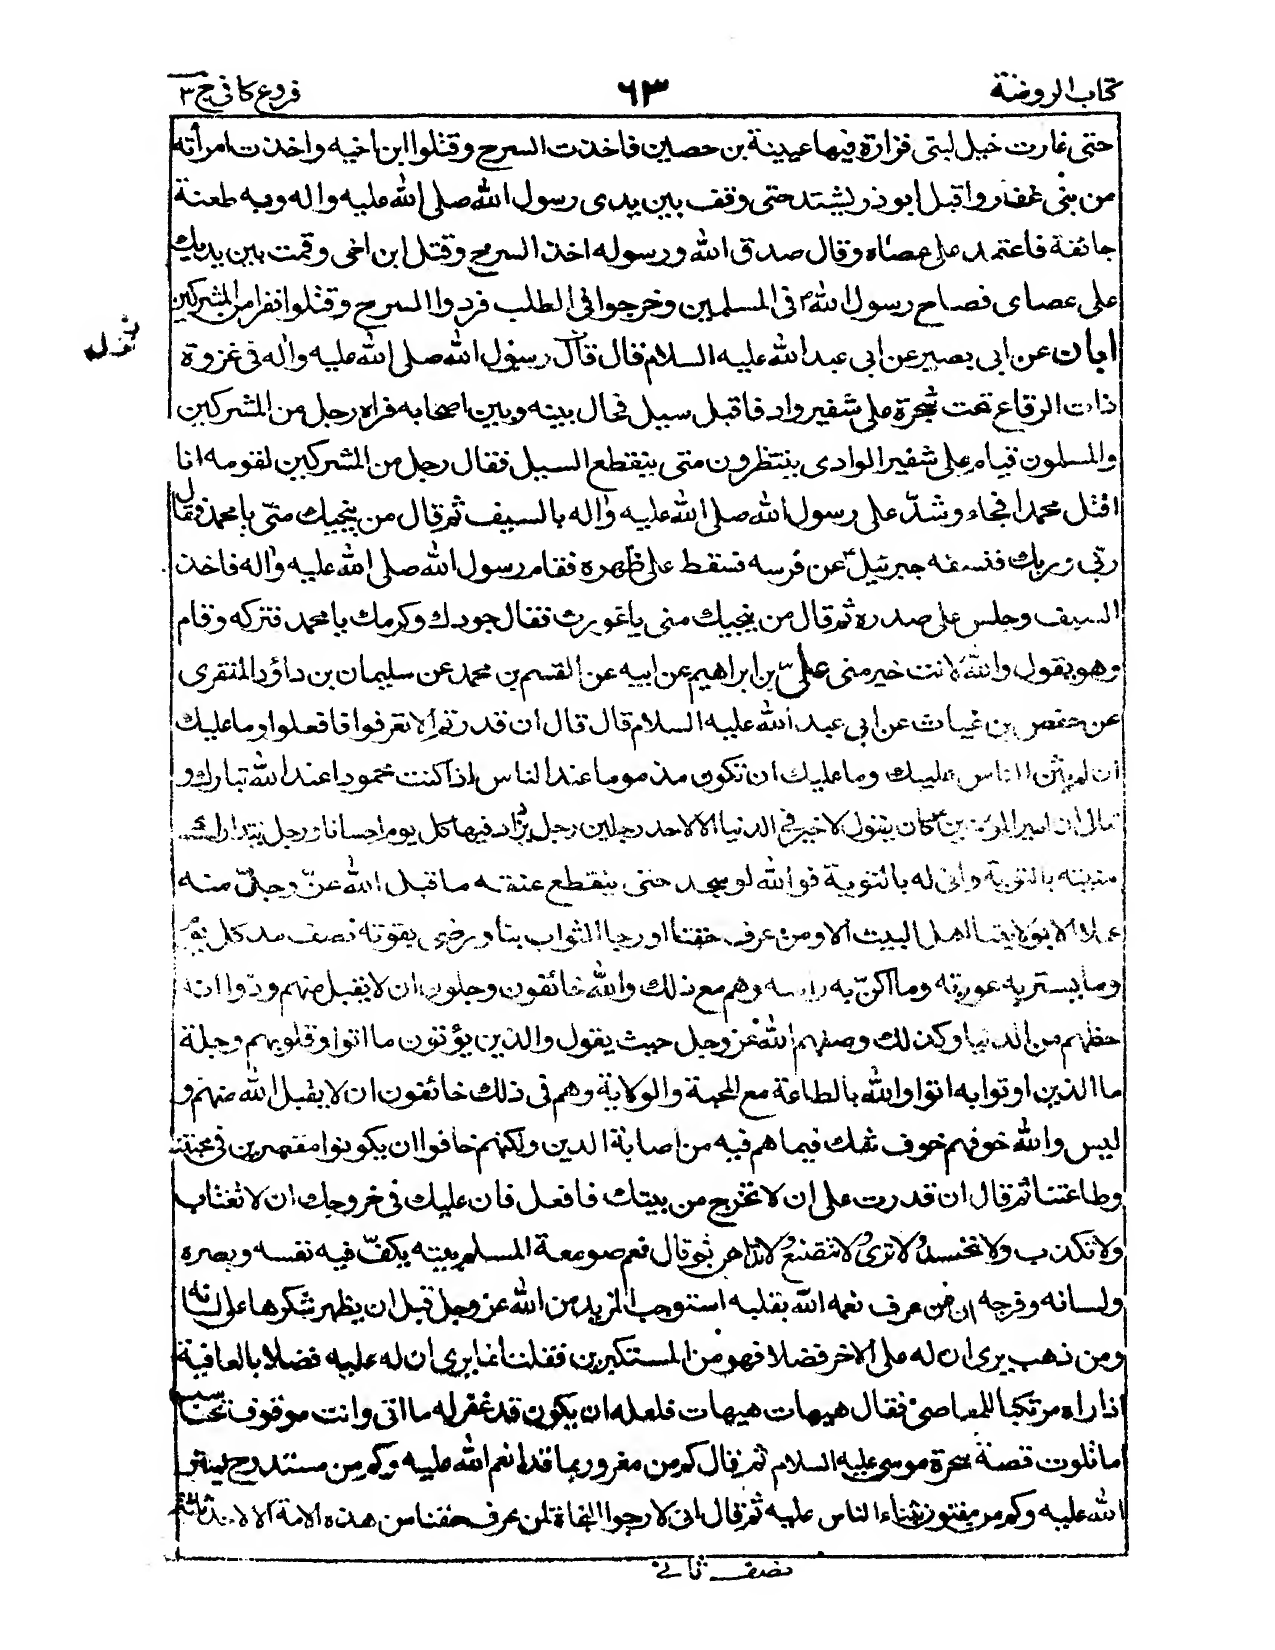 كتاب الروضة ٦٣ فروع كافى ج ٣
حتى غارت خيل لبنى فزارة فيها عيينة بن حصين فاخذت السرح وقتلوا ابن اخيه واخذت امرأته
من بنى غفار واقبل ابوذر يشتد حتى وقف بين يدى رسول الله صلى الله عليه واله وبه طعنة
جائفة فاعتمد على عصاه وقال صدق الله ورسوله اخذ السرح وقتل ابن اخى وقمت بين يديك
على عصاى فصاح رسول الله ص فى المسلمين وخرجوا فى الطلب فردوا السرح وقتلوا نفرا من المشركين
ابان عن ابى بصير عن ابى عبد الله عليه السلام قال قال رسول الله صلى الله عليه واله فى غزوة
ذات الرقاع تحت شجرة على شفير واد فاقبل سيل فحال بينه وبين اصحابه فراه رجل من المشركين
والمسلمون قيام على شفير الوادى ينتظرون متى ينقطع السيل فقال رجل من المشركين لقومه انا
اقتل محمدا فجاء وشدّ على رسول الله صلى الله عليه واله بالسيف ثم قال من ينجيك منّى يا محمد فقال
ربّى وربك فنسفه جبرئيل ع عن فرسه فسقط على ظهره فقام رسول الله صلى الله عليه واله فاخذ
السيف وجلس على صدره ثم قال من ينجيك منى يا غورث فقال جودك وكرمك يا محمد فتركه وقام
وهو يقول والله لانت خير منى علىّ بن ابراهيم عن ابيه عن القسم بن محمد عن سليمان بن داؤد المنقرى
عن حفص بن غياث عن ابى عبد الله عليه السلام قال قال ان قدرتم الا تعرفوا فافعلوا وما عليك
ان لم يثن الناس عليك وما عليك ان تكون مذموما عند الناس اذا كنت محمودا عند الله تبارك و
تعالى ان امير المؤمنين ع كان يقول لا خير فى الدنيا الا لاحد رجلين رجل يزداد فيها كل يوم احسانا ورجل يتدارك
منيته بالتوبة وانى له بالتوبة فوالله لو سجد حتى ينقطع عنقه ما قبل الله عزّ وجلّ منه
عملا الا بولايتنا اهل البيت الا ومن عرف حقنا او رجا الثواب بنا ورضى بقوته نصف مد كل يوم
وما يستر به عورته وما اكنّ به راسه وهم مع ذلك والله خائفون وجلون ان لا يقبل منهم ودّوا انه
حظهم من الدنيا وكذلك وصفهم الله عز وجل حيث يقول والذين يؤتون ما اتوا وقلوبهم وجلة
ما الذين اوتوا به اتوا والله بالطاعة مع المحبة والولاية وهم فى ذلك خائفون ان لا يقبل الله منهم و
ليس والله خوفهم خوف شك فيما هم فيه من اصابة الدين ولكنهم خافوا ان يكونوا مقصرين فى محبتنا
وطاعتنا ثم قال ان قدرت على ان لا تخرج من بيتك فافعل فان عليك فى خروجك ان لا تغتاب
ولا تكذب ولا تحسد ولا ترى ولا تتصنع ولا تداهن ثم قال نعم صومعة المسلم بيته يكفّ فيه نفسه وبصره
ولسانه وفرجه ان من عرف نعمه الله بقلبه استوجب المزيد من الله عز وجل قبل ان يظهر شكرها على لسانه
ومن ذهب يرى ان له على الاخر فضلا فهو من المستكبرين فقلت انما يرى ان له عليه فضلا بالعافية
اذا راه مرتكبا للمعاصى فقال هيهات هيهات فلعله ان يكون قد غفر له ما اتى وانت موقوف تحاسب
اما تلوت قصة سحرة موسى عليه السلام ثم قال كم من مغرور بما قد انعم الله عليه وكم من مستدرج بستر
الله عليه وكم من مفتون بثناء الناس عليه ثم قال انى لارجوا النجاة لمن عرف حقنا من هذه الامة الا لاحد ثلثة
نصف ثانى